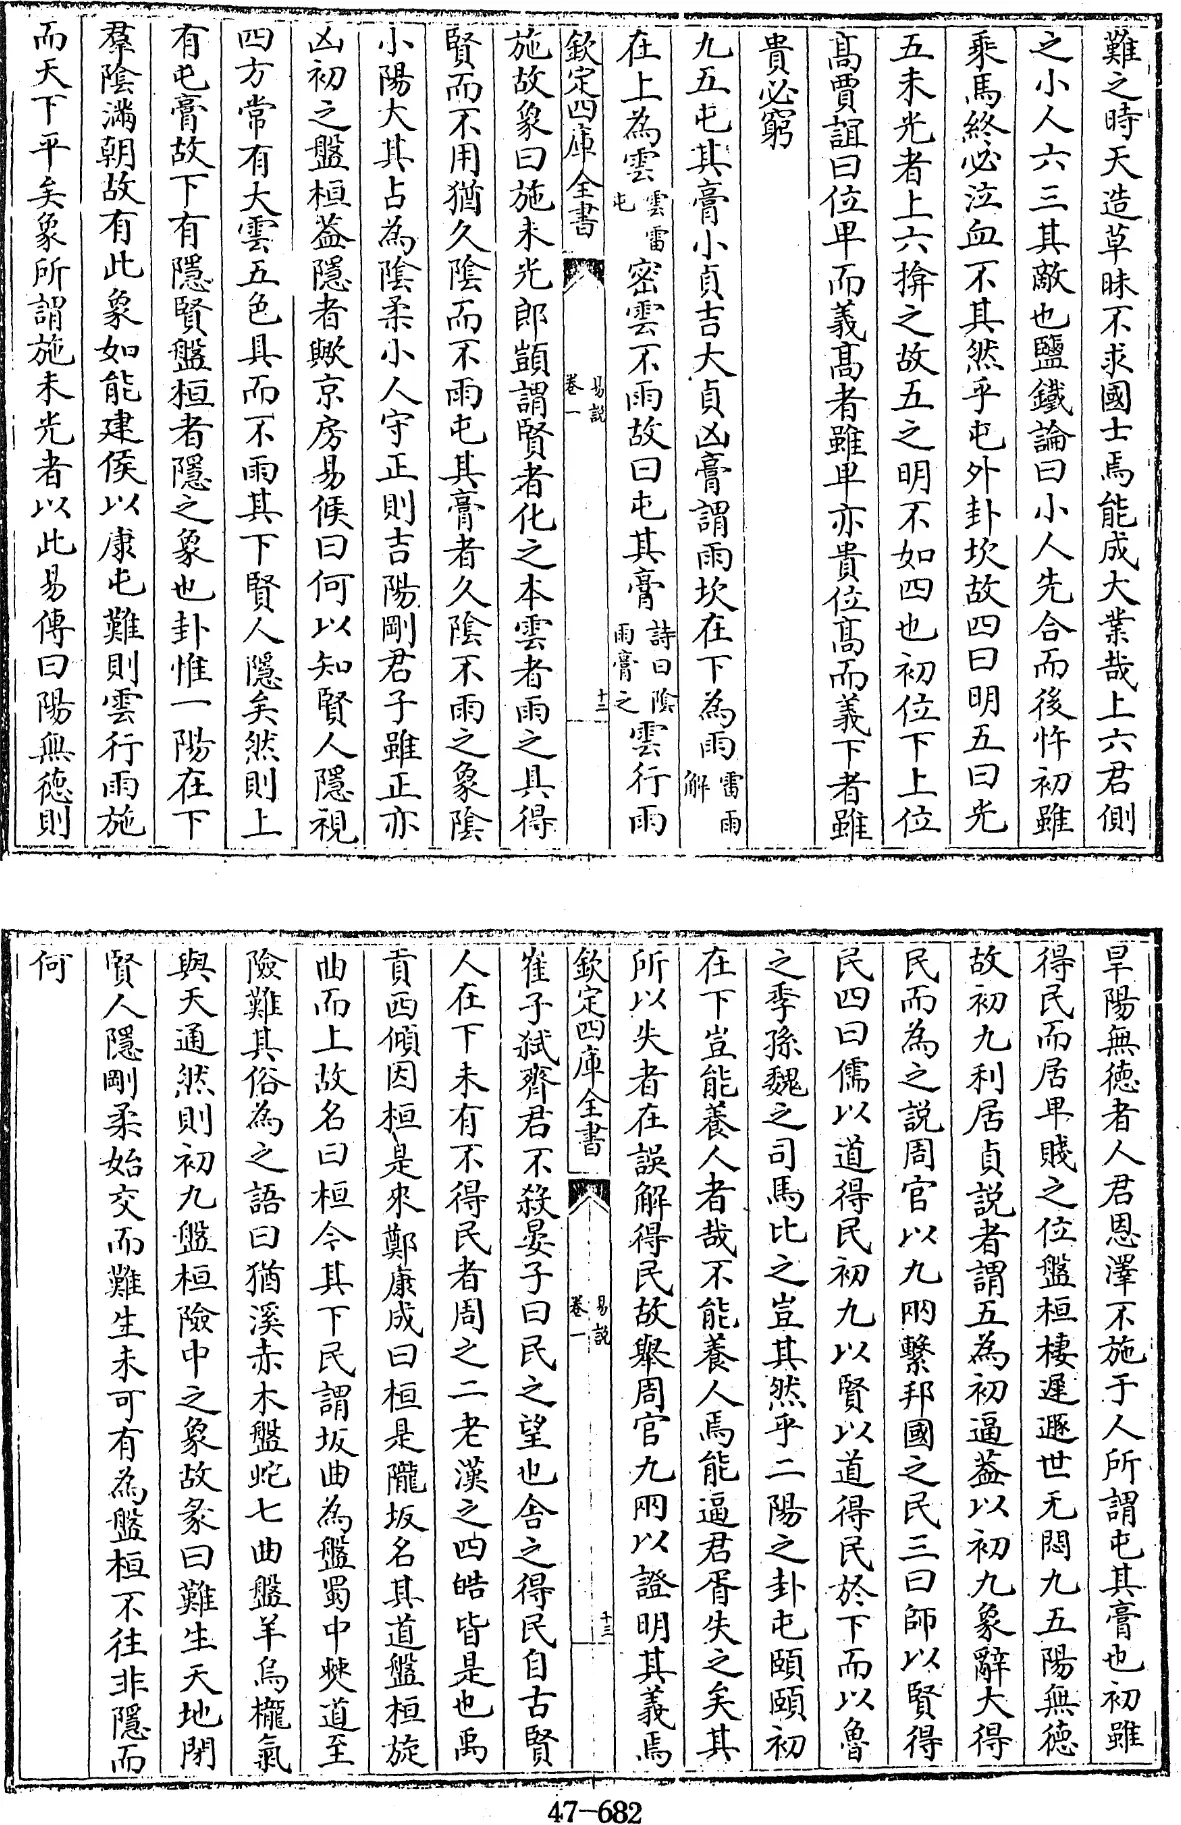 難之時天造草昧不求國士焉能成大業哉上六君側
之小人六三其敵也鹽鐵論曰小人先合而後忤初雖
乘馬終必泣血不其然乎屯外卦坎故四曰明五曰光
五未光者上六揜之故五之明不如四也初位下上位
髙賈誼曰位卑而義髙者雖卑亦貴位髙而義下者雖
貴必窮
九五屯其膏小貞吉大貞凶膏謂雨坎在下為雨雷雨解
在上為雲雲雷屯密雲不雨故曰屯其膏詩曰隂雨膏之雲行雨
欽定四庫全書
易説
卷一
十二
施故彖曰施未光郎顗謂賢者化之本雲者雨之具得
賢而不用猶久隂而不雨屯其膏者久隂不雨之象隂
小陽大其占為隂柔小人守正則吉陽剛君子雖正亦
凶初之盤桓葢隱者歟京房易候曰何以知賢人隱視
四方常有大雲五色具而不雨其下賢人隱矣然則上
有屯膏故下有隱賢盤桓者隱之象也卦惟一陽在下
羣隂滿朝故有此象如能建侯以康屯難則雲行雨施
而天下平矣象所謂施未光者以此易傳曰陽無徳則
旱陽無徳者人君恩澤不施于人所謂屯其膏也初雖
得民而居卑賤之位盤桓棲遲遯世无悶九五陽無徳
故初九利居貞説者謂五為初逼葢以初九象辭大得
民而為之説周官以九兩繫邦國之民三曰師以賢得
民四曰儒以道得民初九以賢以道得民於下而以魯
之季孫魏之司馬比之豈其然乎二陽之卦屯頤頤初
在下豈能養人者哉不能養人焉能逼君胥失之矣其
所以失者在誤解得民故舉周官九兩以證明其義焉
欽定四庫全書
易説
卷一
十三
崔子弑齊君不殺晏子曰民之望也舎之得民自古賢
人在下未有不得民者周之二老漢之四皓皆是也禹
貢西傾因桓是來鄭康成曰桓是隴坂名其道盤桓旋
曲而上故名曰桓今其下民謂坂曲為盤蜀中㷉道至
險難其俗為之語曰猶溪赤木盤蛇七曲盤羊烏櫳氣
與天通然則初九盤桓險中之象故彖曰難生天地閉
賢人隱剛柔始交而難生未可有為盤桓不往非隱而
何
47-682